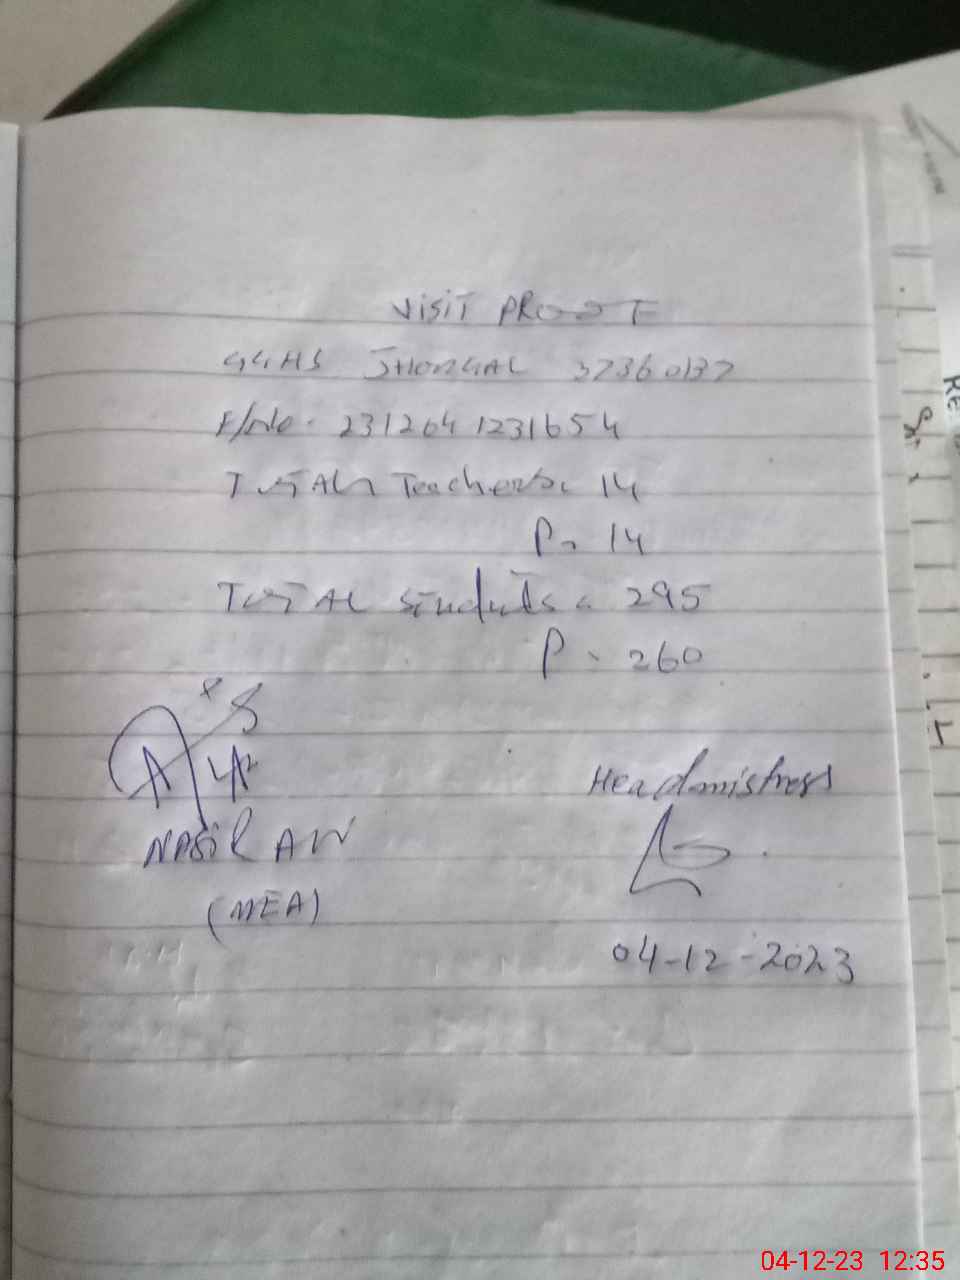 VISIT PROOF
GGHS JHONGAL 37360137
F/No. 2312041231654
TOTAL Teachers. 14
P. 14
TOTAL students. 295
P. 260
Headmistress
NASIR
(MEA)
04-12-2023
04-12-23 12:35